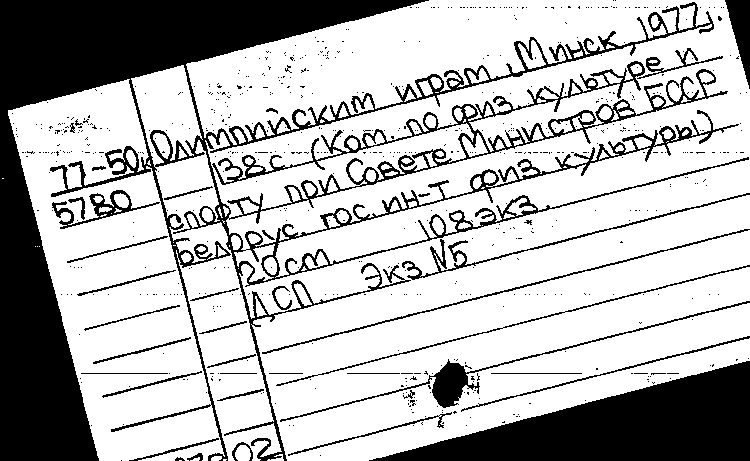 Олимпийским играм. Минск, 1977г.
77-50к 138с. (Ком. по физ. культуре и
5780 спорту при Совете Министров БССР
Белорус. гос. ин-т физ. культуры).
20см. 108экз.
ДСП. Экз. №5
02